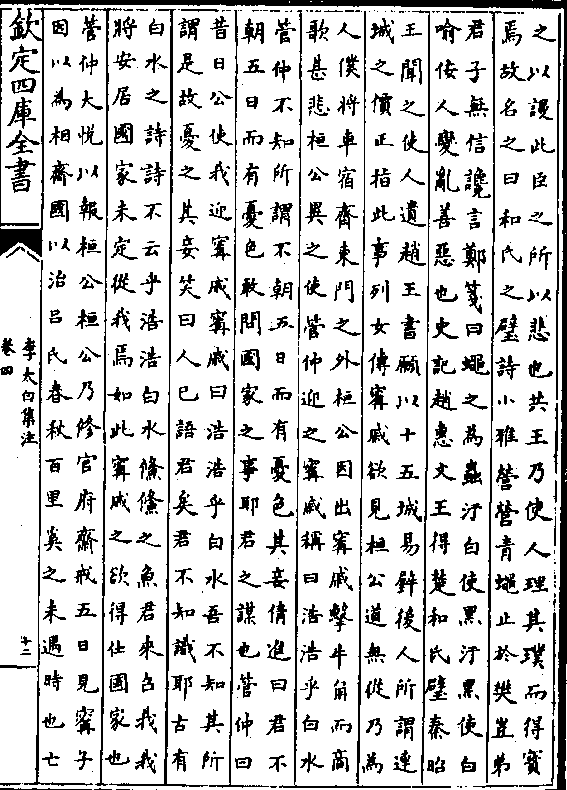 之以謾此臣之所以悲也共王乃使人理其璞而得寳
焉故名之曰和氏之璧詩小雅營營青蠅止於樊豈弟
君子無信讒言鄭箋曰蠅之為蟲汙白使黒汙黒使白
喻佞人變亂善惡也史記趙惠文王得楚和氏璧秦昭
王聞之使人遺趙王書願以十五城易璧後人所謂連
城之價正指此事列女傳寗戚欲見桓公道無從乃為
人僕將車宿齊東門之外桓公因出寗戚擊牛角而商
歌甚悲桓公異之使管仲迎之寗戚稱曰浩浩乎白水
管仲不知所謂不朝五日而有憂色其妾倩進曰君不
朝五日而有憂色敢問國家之事耶君之謀也管仲曰
昔日公使我迎寗戚寗戚曰浩浩乎白水吾不知其所
謂是故憂之其妾笑曰人已語君矣君不知識耶古有
白水之詩詩不云乎浩浩白水鯈鯈之魚君來召我我
將安居國家未定從我焉如此寗戚之欲得仕國家也
管仲大悅以報桓公桓公乃修官府齋戒五日見寗子
因以為相齊國以治吕氏春秋百里奚之未遇時也亡
欽定四庫全書
李太白集注
卷四
十二